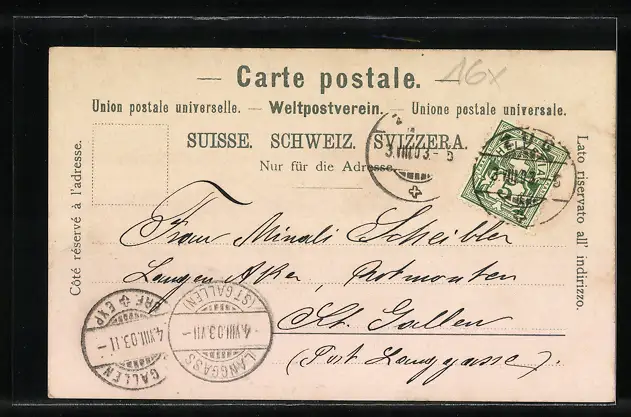 — Carte postale. —
16x
Union postale universelle. — Weltpostverein. — Unione postale universale.
SUISSE. SCHWEIZ. SVIZZERA.
Nur für die Adresse.
Côté réservé à l'adresse.
Lato riservato all' indirizzo.
3.VIII.03.-5
ZUG
5
Frau Minali Scheibler
Langen Aker, Rotmonten
St. Gallen
(Post Langgasse).
BRF EXP
4.VIII.03.11-
GALLEN
(ST. GALLEN)
4.VIII.03.VII-
LANGGASS